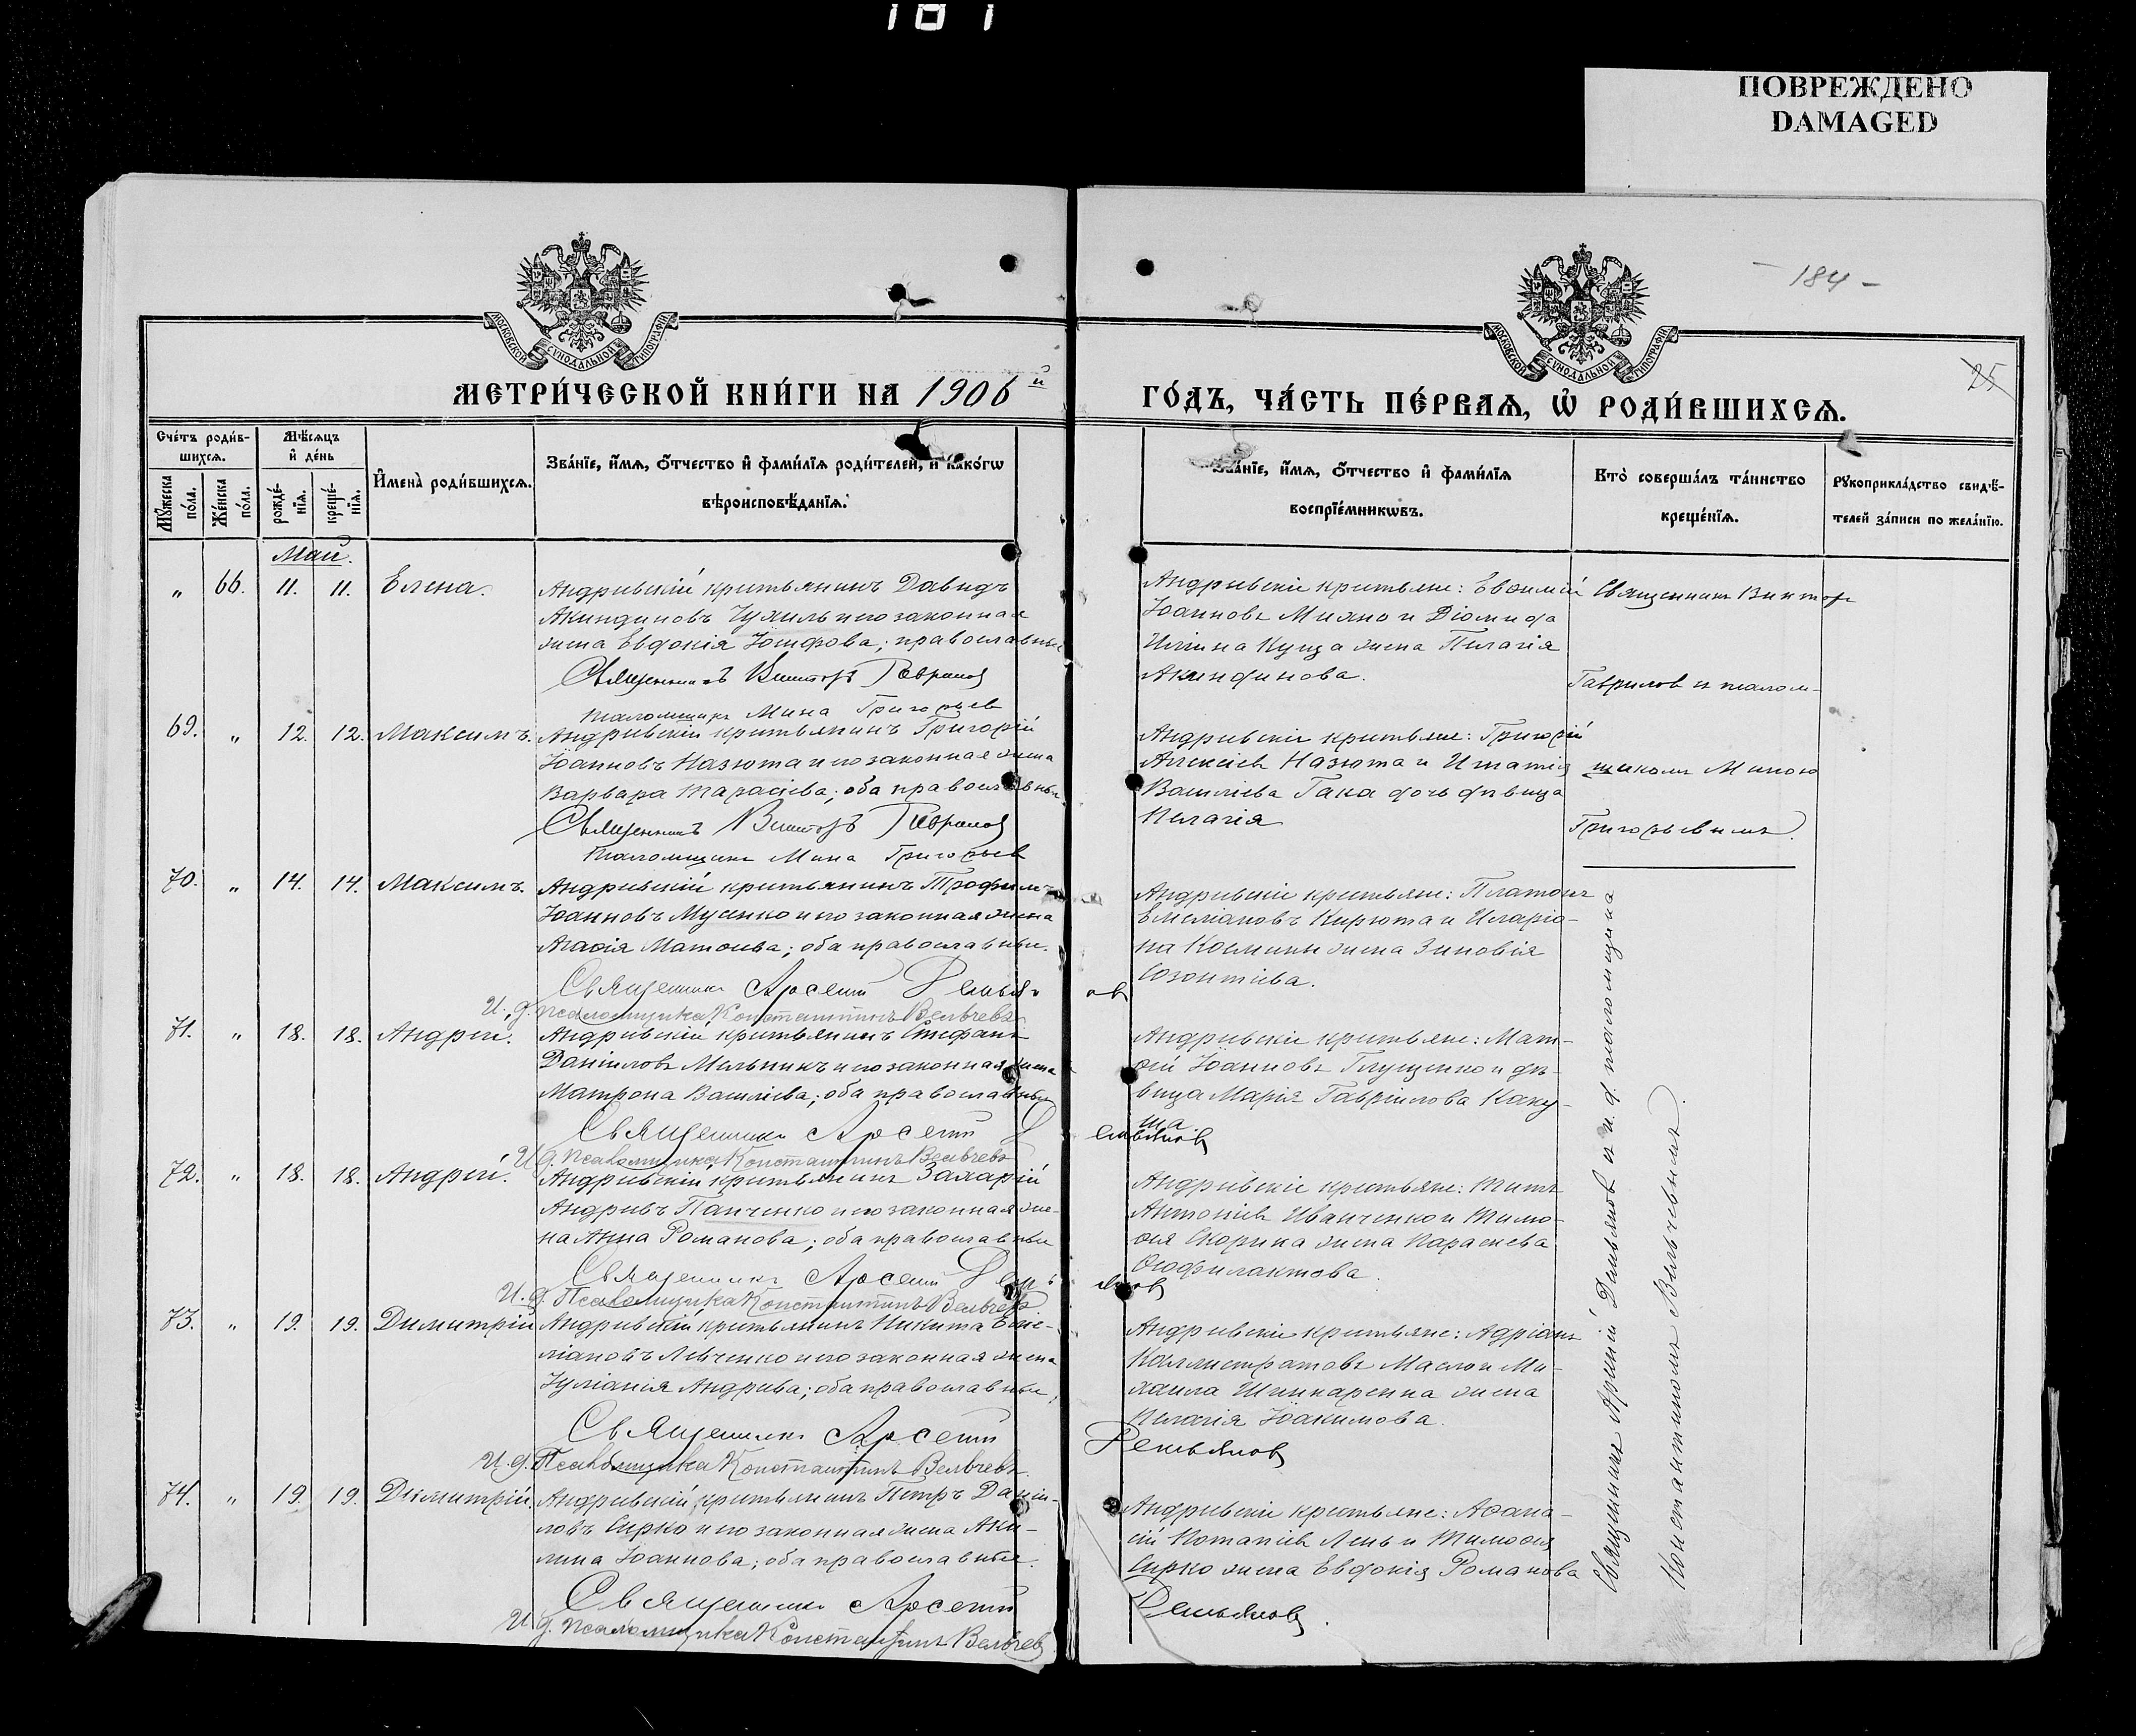 181
ПОВРЕЖДЕНО
DAMAGED
184
25
МОСКОВСКОЙ СѴНОДАЛЬНОЙ ТИПОГРАФІИ
МОСКОВСКОЙ СѴНОДАЛЬНОЙ ТИПОГРАФІИ
МЕТРИ́ЧЕСКОЙ КНИ́ГИ НА 1906 й
ГО́ДЪ, ЧА́СТЬ ПЕ́РВАѦ, Ѡ҆ РОДИ́ВШИХСѦ.
Сче́тъ роди́в-
шихсѧ.
Мѣ́сѧцъ
и҆ де́нь
Мꙋ́жеска по́ла.
Же́нска по́ла.
рожде́-
нїѧ.
креще́-
нїѧ.
И҆мена̀ роди́вшихсѧ.
Зва́нїе, и҆́мѧ, ѻ҆́тчество и҆ фами́лїѧ роди́телей, и҆ како́гѡ
вѣроисповѣ́данїѧ.
Зва́нїе, и҆́мѧ, ѻ҆́тчество и҆ фами́лїѧ
воспрїе́мникѡвъ.
Кто̀ соверша́лъ та́инство
креще́нїѧ.
Рꙋкоприкла́дство свидѣ́-
телей за́писи по жела́нїю.
Май.
„ 66. 11. 11. Елена.
Андреевскій крестьянинъ Давидъ
Акиндиновъ Чухиль и его законная
жена Евдокія Іосифова; православные
Священникъ Викторъ Гаврилов
псаломщикъ Мина Григорьев
Андреевскіе крестьяне: Евѳимій
Іоанновъ Михно и Діомида
Илiина Куца жена Пелагія
Акиндинова.
Священникъ Викторъ
Гаврилов и псалом-
щикомъ Миною
Григорьевымъ.
69. „ 12. 12. Максимъ.
Андреевскій крестьянинъ Григорій
Іоанновъ Назюта и его законная жена
Варвара Тарасіева; оба православные
Священникъ Викторъ Гаврилов
псаломщикъ Мина Григорьев
Андреевскіе крестьяне: Григорій
Алексіевъ Назюта и Игнатія
Василіева Гака дочь дѣвица
Пелагія
70. „ 14. 14. Максимъ.
Андреевскій крестьянинъ Трофимъ
Іоанновъ Мусенко и его законная жена
Агаѳія Матѳеева; оба православные.
Священникъ Арсеній Демьянов
И. д. псаломщика Константинъ Вельчевъ
Андреевскіе крестьяне: Платонъ
Емеліановъ Кирюта и Иларіо-
на Космини жена Зиновія
Созонтіева.
71. „ 18. 18. Андрей.
Андреевскій крестьянинъ Стефанъ
Даніиловъ Мельникъ и его законная жена
Матрона Василіева; оба православные
Священникъ Арсеній Демьянов
И. д. Псаломщика Константинъ Вельчевъ
Андреевскіе крестьяне: Мат-
ѳій Іоанновъ Глущенко и дѣ-
вица Марія Гавріилова Каку-
ша.
72. „ 18. 18. Андрей.
Андреевскій крестьянинъ Захарій
Андреевъ Панченко и его законная же-
на Анна Романова; оба православные
Священникъ Арсеній Демьянов
И. д. Псаломщика Константинъ Вельчевъ
Андреевскіе крестьяне: Титъ
Антоніевъ Иванченко и Тимо-
ѳея Скорина жена Параскева
Ѳеофилактова.
73. „ 19. 19. Димитрій
Андреевскій крестьянинъ Никита Еме-
ліановъ Левченко и его законная жена
Іуліанія Андреева; оба православные,
Священникъ Арсеній Демьянов
И. д. Псаломщика Константинъ Вельчевъ.
Андреевскіе крестьяне: Адріанъ
Каллистратовъ Масло и Ми-
хаила Шинкаренка жена
Пелагія Іоакимова.
74. „ 19. 19. Димитрій.
Андреевскій крестьянинъ Петръ Даніи-
ловъ Сирко и его законная жена Аки-
лина Іоаннова; оба православные.
Священникъ Арсеній Демьянов.
И. д. псаломщика Константинъ Вельчев
Андреевскіе крестьяне: Аѳана-
сій Потапіевъ Лень и Тимоѳея
Сирко жена Евдокія Романова
Священникъ Арсеній Демьянов и и. д. псаломщика
Константиномъ Вельчевымъ.